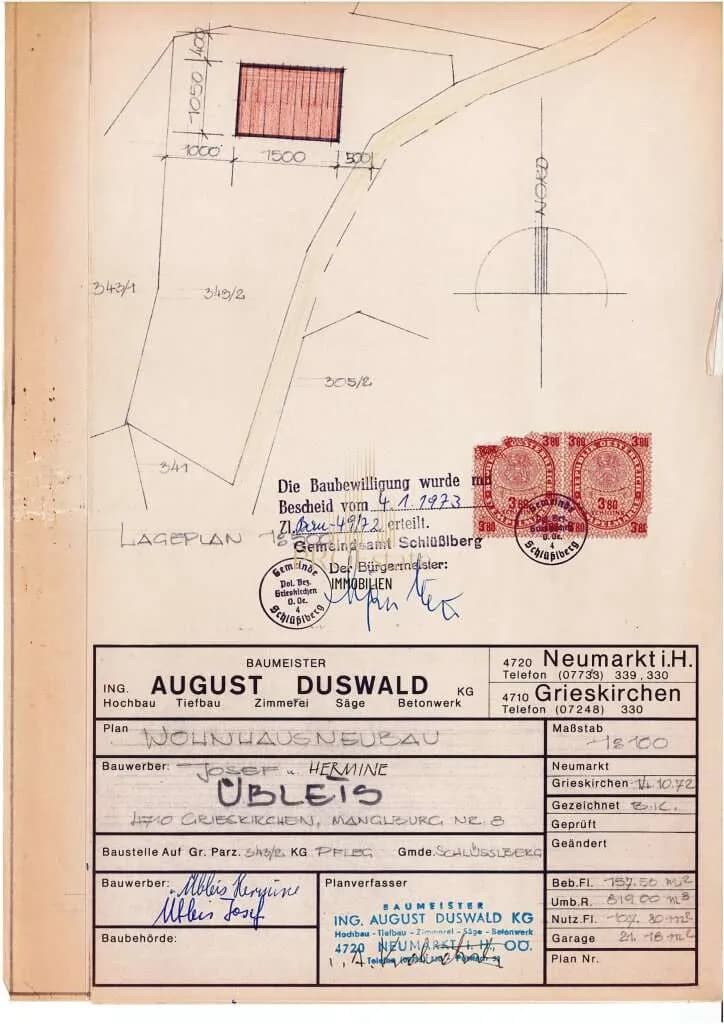 400
1050
1000 1500 500
NORD
343/1
343/2
305/2
341
3 80 3 80 3 80
REPUBLIK OESTERREICH
3 80 3 80
3 80 3 80
Die Baubewilligung wurde mit
Bescheid vom 4.1.1973
Zl. Bau-49/72 erteilt.
Gemeindeamt Schlüßlberg
Der Bürgermeister:
IMMOBILIEN
LAGEPLAN
Gemeinde
Pol. Bez.
Grieskirchen
O. Oe.
4
Schlüßlberg
Gemeinde
Pol. Bez.
Grieskirchen
O. Oe.
4
Schlüßlberg
BAUMEISTER
ING. AUGUST DUSWALD KG
Hochbau Tiefbau Zimmerei Säge Betonwerk
4720 Neumarkt i.H.
Telefon (07733) 339, 330
4710 Grieskirchen
Telefon (07248) 330
Plan WOHNHAUSNEUBAU
Maßstab
1:100
Bauwerber: JOSEF u. HERMINE
ÜBLEIS
4710 GRIESKIRCHEN, MANGLBURG NR. 8
Neumarkt
Grieskirchen 14.10.72
Gezeichnet B.K.
Geprüft
Geändert
Baustelle Auf Gr. Parz. 343/2 KG PFLEG Gmde. SCHLÜSSLBERG
Bauwerber: Übleis Hermine
Übleis Josef
Baubehörde:
Planverfasser
BAUMEISTER
ING. AUGUST DUSWALD KG
Hochbau - Tiefbau - Zimmerei - Säge - Betonwerk
4720 NEUMARKT i. H., OÖ.
Beb.Fl. 157.50 m²
Umb.R. 819.00 m³
Nutz.Fl. 107.30 m²
Garage 21.18 m²
Plan Nr.